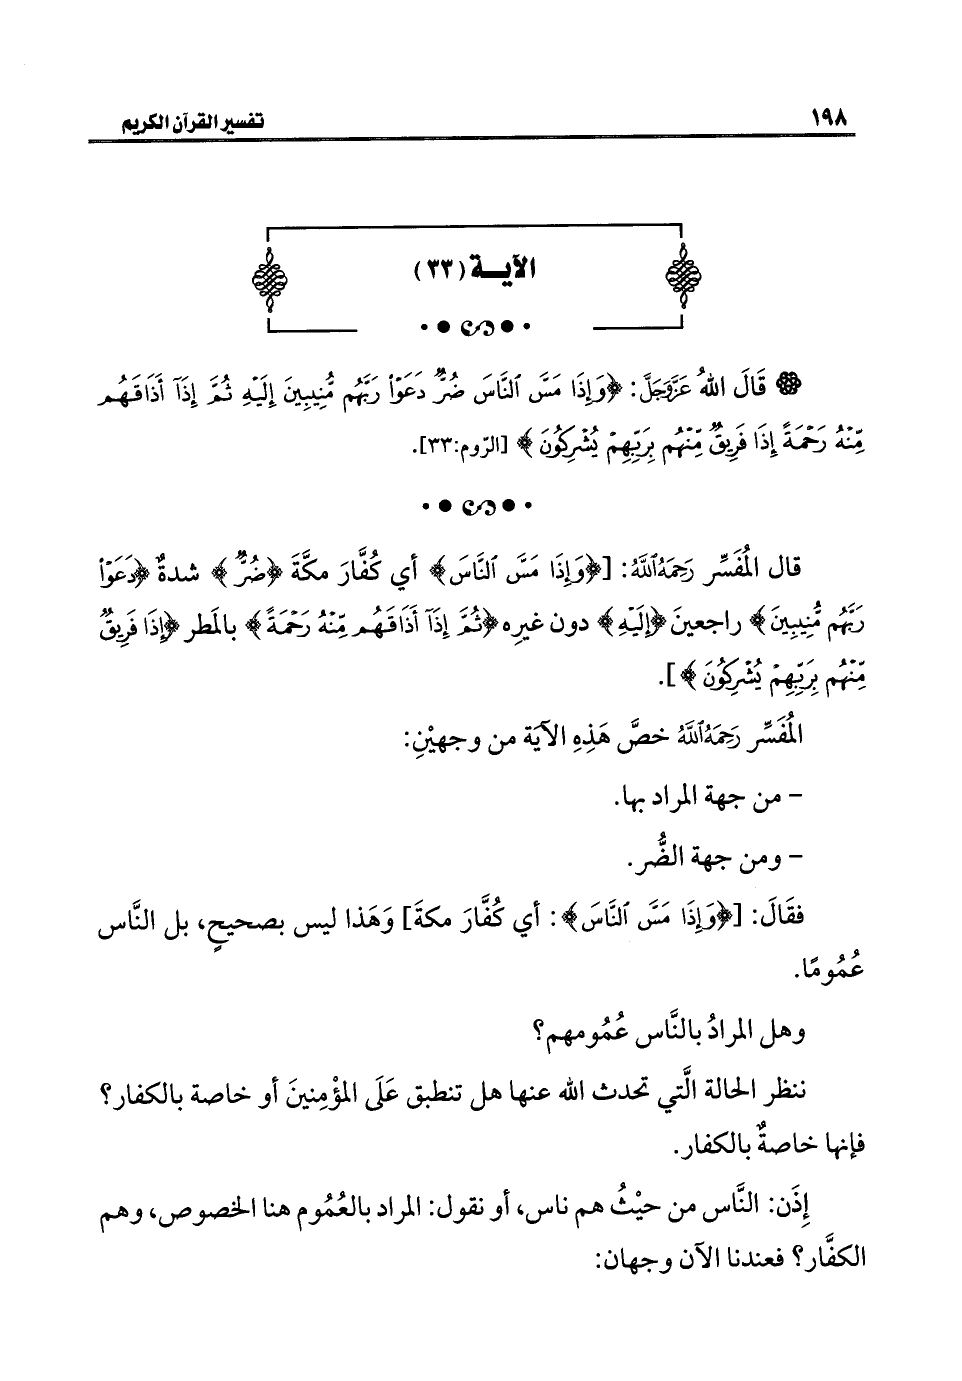 ١٩٨
تفسير القرآن الكريم
الآيــة (٣٣)
قَالَ اللهُ عَزَّوَجَلَّ: ﴿وَإِذَا مَسَّ ٱلنَّاسَ ضُرٌّ دَعَوْا۟ رَبَّهُم مُّنِيبِينَ إِلَيْهِ ثُمَّ إِذَآ أَذَاقَهُم
مِّنْهُ رَحْمَةً إِذَا فَرِيقٌ مِّنْهُم بِرَبِّهِمْ يُشْرِكُونَ﴾ [الرّوم:٣٣].
قال المُفَسِّر رَحِمَهُ ٱللَّهُ: [﴿وَإِذَا مَسَّ ٱلنَّاسَ﴾ أي كُفَّارَ مكَّةَ ﴿ضُرٌّ﴾ شدةٌ ﴿دَعَوْا۟
رَبَّهُم مُّنِيبِينَ﴾ راجعينَ ﴿إِلَيْهِ﴾ دون غيرِه ﴿ثُمَّ إِذَآ أَذَاقَهُم مِّنْهُ رَحْمَةً﴾ بالمَطر ﴿إِذَا فَرِيقٌ
مِّنْهُم بِرَبِّهِمْ يُشْرِكُونَ﴾].
المُفَسِّر رَحِمَهُ ٱللَّهُ خصَّ هَذِهِ الآيَة من وجهيْنِ:
- من جهة المراد بها.
- ومن جهة الضُّر.
فقَالَ: [﴿وَإِذَا مَسَّ ٱلنَّاسَ﴾: أي كُفَّارَ مكةَ] وَهَذا ليس بصحيحٍ، بل النَّاس
عُمُومًا.
وهل المرادُ بالنَّاس عُمُومهم؟
ننظر الحالة الَّتي تحدث الله عنها هل تنطبق عَلَى المؤْمِنينَ أو خاصة بالكفار؟
فإنها خاصةٌ بالكفار.
إِذَن: النَّاس من حيْثُ هم ناس، أو نقول: المراد بالعُمُوم هنا الخصوص، وهم
الكفَّار؟ فعندنا الآن وجهان: